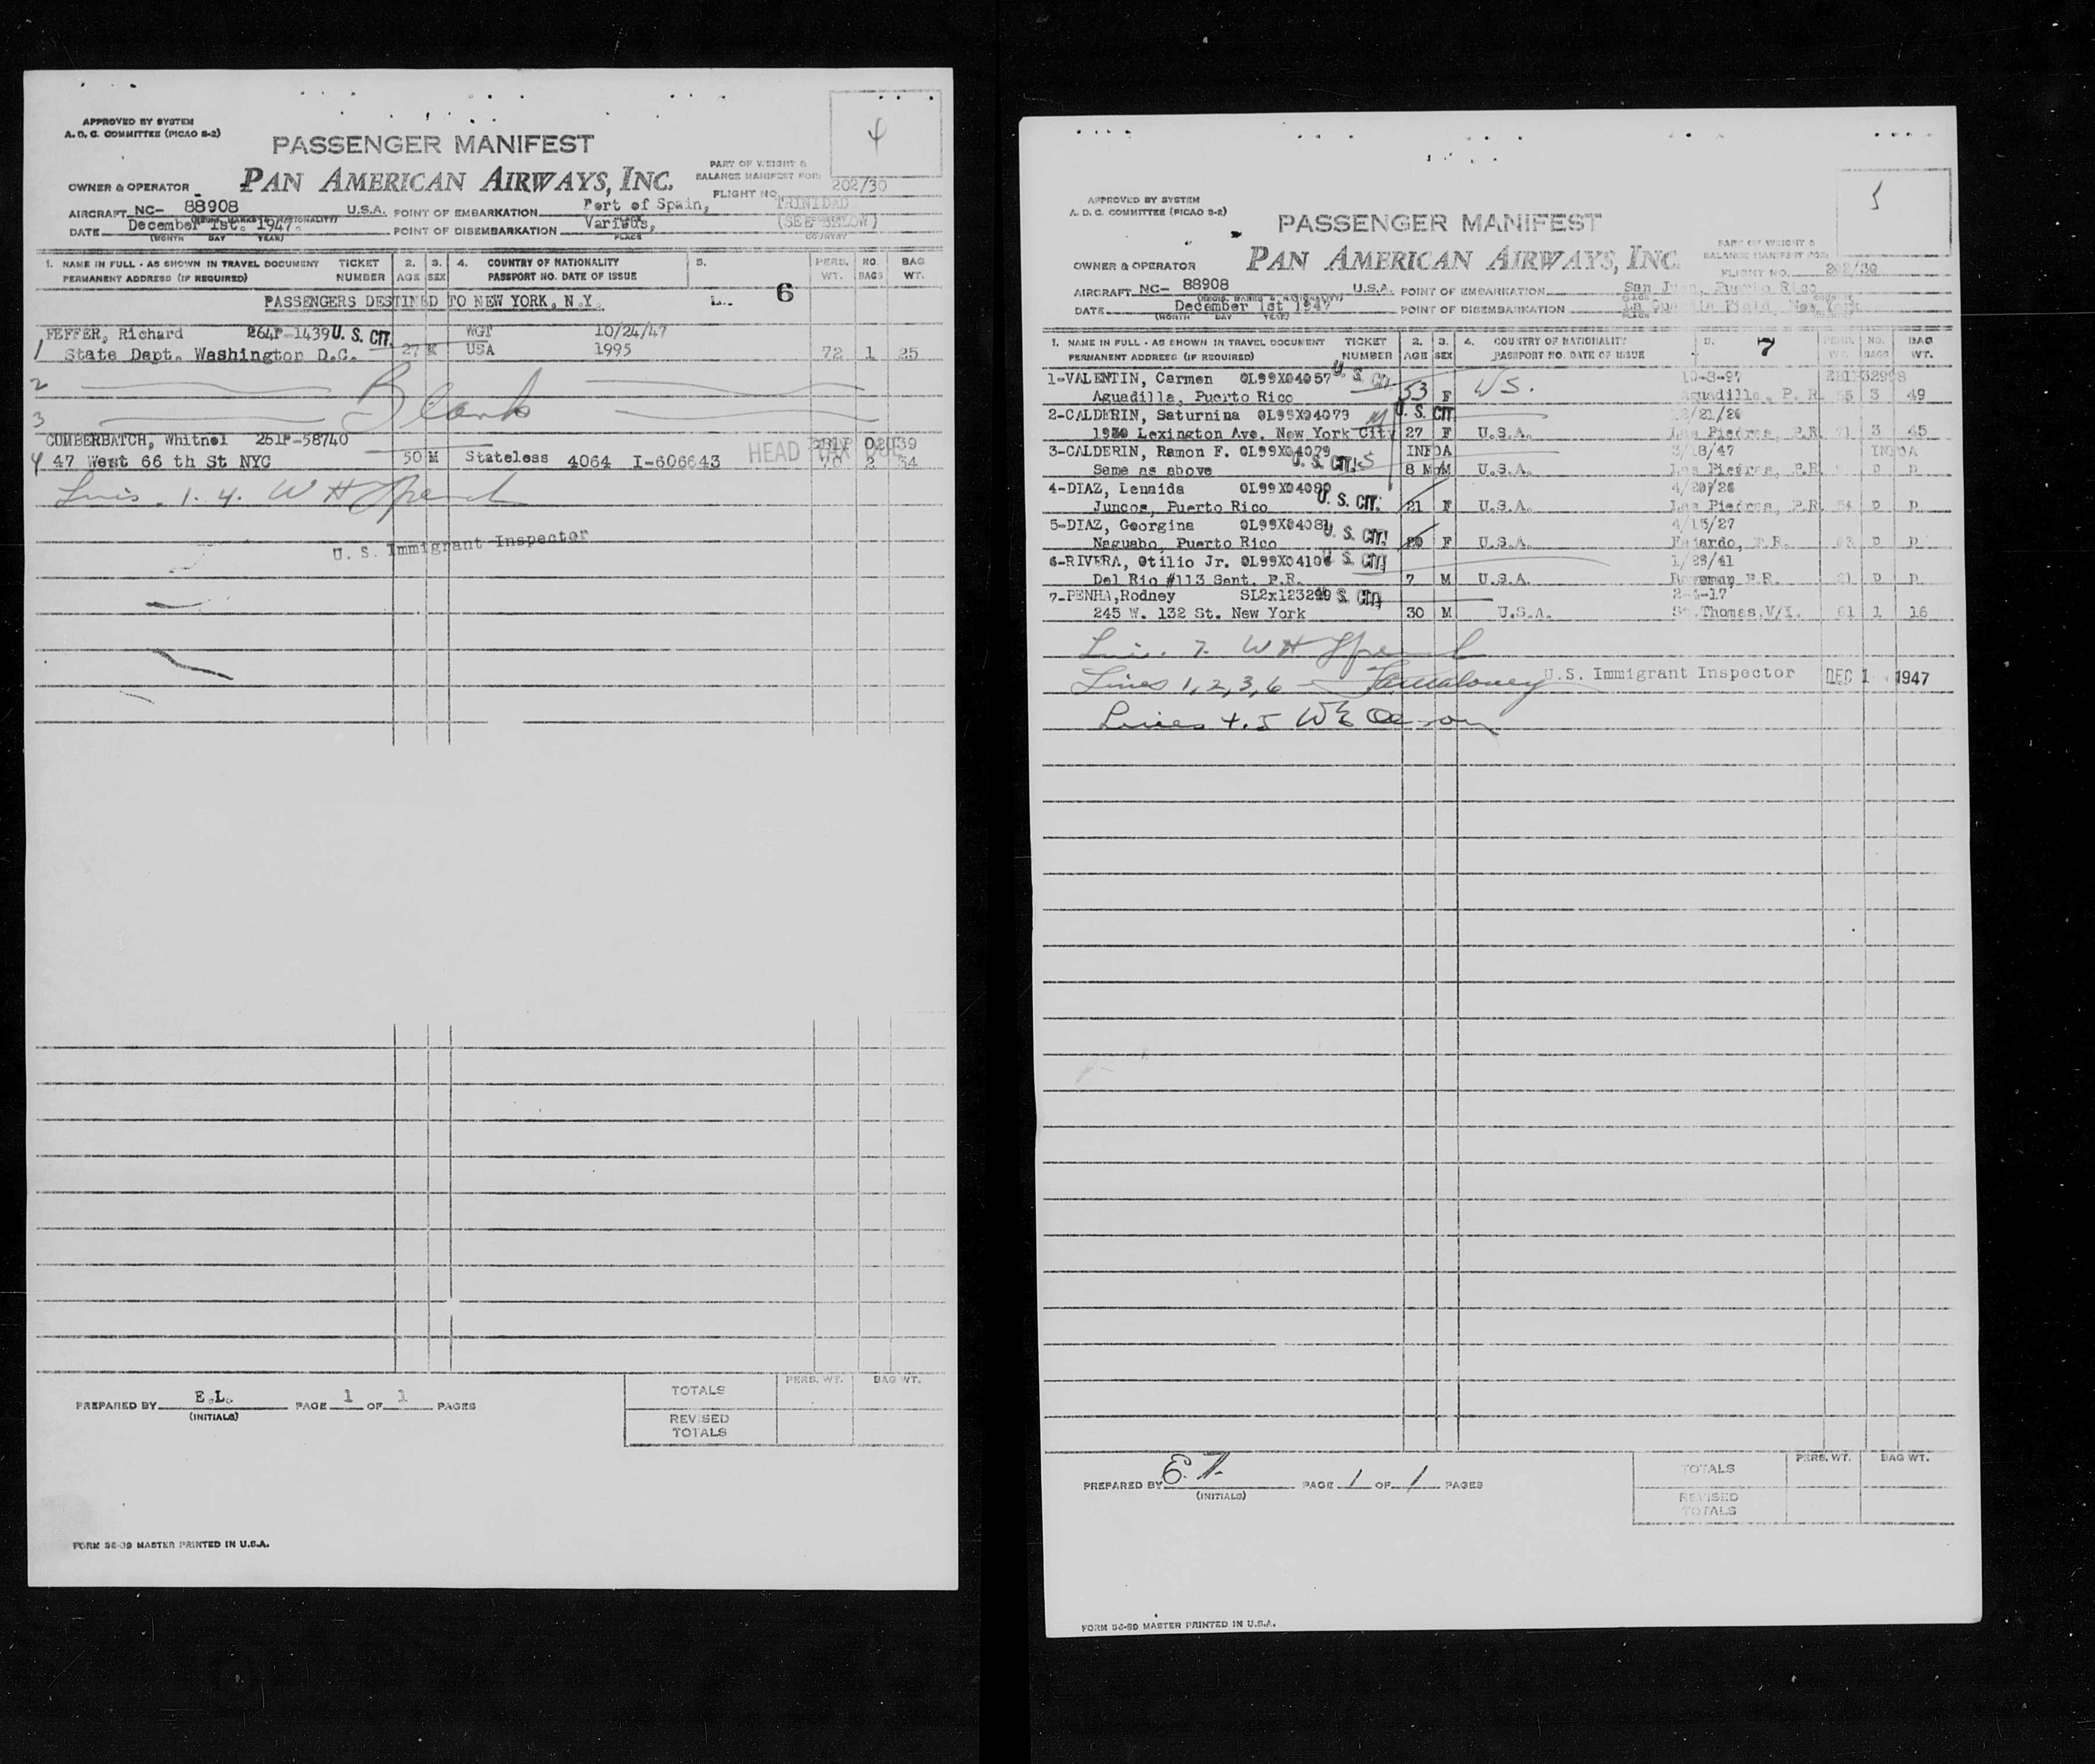 APPROVED BY SYSTEM
A. D. C. COMMITTEE (PICAO S-2)
4
PASSENGER MANIFEST
PART OF WEIGHT &
BALANCE MANIFEST FOR:
OWNER & OPERATOR PAN AMERICAN AIRWAYS, INC.
FLIGHT NO. 202/30
AIRCRAFT NC- 88908 U.S.A. POINT OF EMBARKATION Port of Spain, TRINIDAD
DATE December 1st. 1947. POINT OF DISEMBARKATION Various, (SEE BELOW)
(MONTH DAY YEAR) PLACE COUNTRY
1. NAME IN FULL - AS SHOWN IN TRAVEL DOCUMENT TICKET 2. 3. 4. COUNTRY OF NATIONALITY 5. PERS. NO. BAG
PERMANENT ADDRESS (IF REQUIRED) NUMBER AGE SEX PASSPORT NO. DATE OF ISSUE WT. BAGS WT.
PASSENGERS DESTINED TO NEW YORK, N.Y. 6
FEFFER, Richard 264P-1439 U. S. CIT. WGT 10/24/47
1 State Dept. Washington D.C. 27 M USA 1995 72 1 25
2 Blank
3
CUMBERBATCH, Whitnel 251P-58740 HEAD TAX DUE
4 47 West 66 th St NYC 50 M Stateless 4064 I-606643 70 2 34
1. 4. W H
U. S. Immigrant Inspector
PREPARED BY E.L. PAGE 1 OF 1 PAGES
(INITIALS)
PERS. WT. BAG WT.
TOTALS
REVISED
TOTALS
FORM 96-39 MASTER PRINTED IN U.S.A.
APPROVED BY SYSTEM
A. D. C. COMMITTEE (PICAO S-2)
5
PASSENGER MANIFEST
PART OF WEIGHT &
BALANCE MANIFEST FOR:
OWNER & OPERATOR PAN AMERICAN AIRWAYS, INC.
FLIGHT NO. 202/30
AIRCRAFT NC- 88908 U.S.A. POINT OF EMBARKATION San Juan, Puerto Rico
DATE December 1st 1947 POINT OF DISEMBARKATION La Guardia Field, New York
(MONTH DAY YEAR) PLACE
1. NAME IN FULL - AS SHOWN IN TRAVEL DOCUMENT TICKET 2. 3. 4. COUNTRY OF NATIONALITY 5. 7 PERS. NO. BAG
PERMANENT ADDRESS (IF REQUIRED) NUMBER AGE SEX PASSPORT NO. DATE OF ISSUE WT. BAGS WT.
1-VALENTIN, Carmen OL99X04057 U. S. CIT. 10-8-97
Aguadilla, Puerto Rico 53 F U.S. Aguadilla, P. R. 3 49
2-CALDERIN, Saturnina OL99X04079 U. S. CIT. 12/21/20
Lexington Ave. New York City 27 F U.S.A. Las Piedras, P.R. 3 45
3-CALDERIN, Ramon F. OL99X04079 U. S. CIT. 3/18/47
Same as above 8 M U.S.A. Las Piedras, P.R.
4-DIAZ, Lenaida OL99X04080 U. S. CIT. 4/20/26
Juncos, Puerto Rico 21 F U.S.A. Las Piedras, P.R. P P
5-DIAZ, Georgina OL99X04081 U. S. CIT. 4/15/27
Naguabo, Puerto Rico 20 F U.S.A. Fajardo, P.R. P P
6-RIVERA, Otilio Jr. OL99X04106 U. S. CIT. 1/29/41
Del Rio #113 Sant. P.R. 7 M U.S.A. P.R. P P
7-PENHA,Rodney SL2x123299 U. S. CIT. 2-4-17
245 W. 132 St. New York 30 M U.S.A. St.Thomas.V/I. 61 1 16
7. W H
Lines 1, 2, 3, 6 U.S. Immigrant Inspector DEC 1 1947
Lines 4. 5
PREPARED BY E. T. PAGE 1 OF 1 PAGES
(INITIALS)
PERS. WT. BAG WT.
TOTALS
REVISED
TOTALS
FORM 96-39 MASTER PRINTED IN U.S.A.